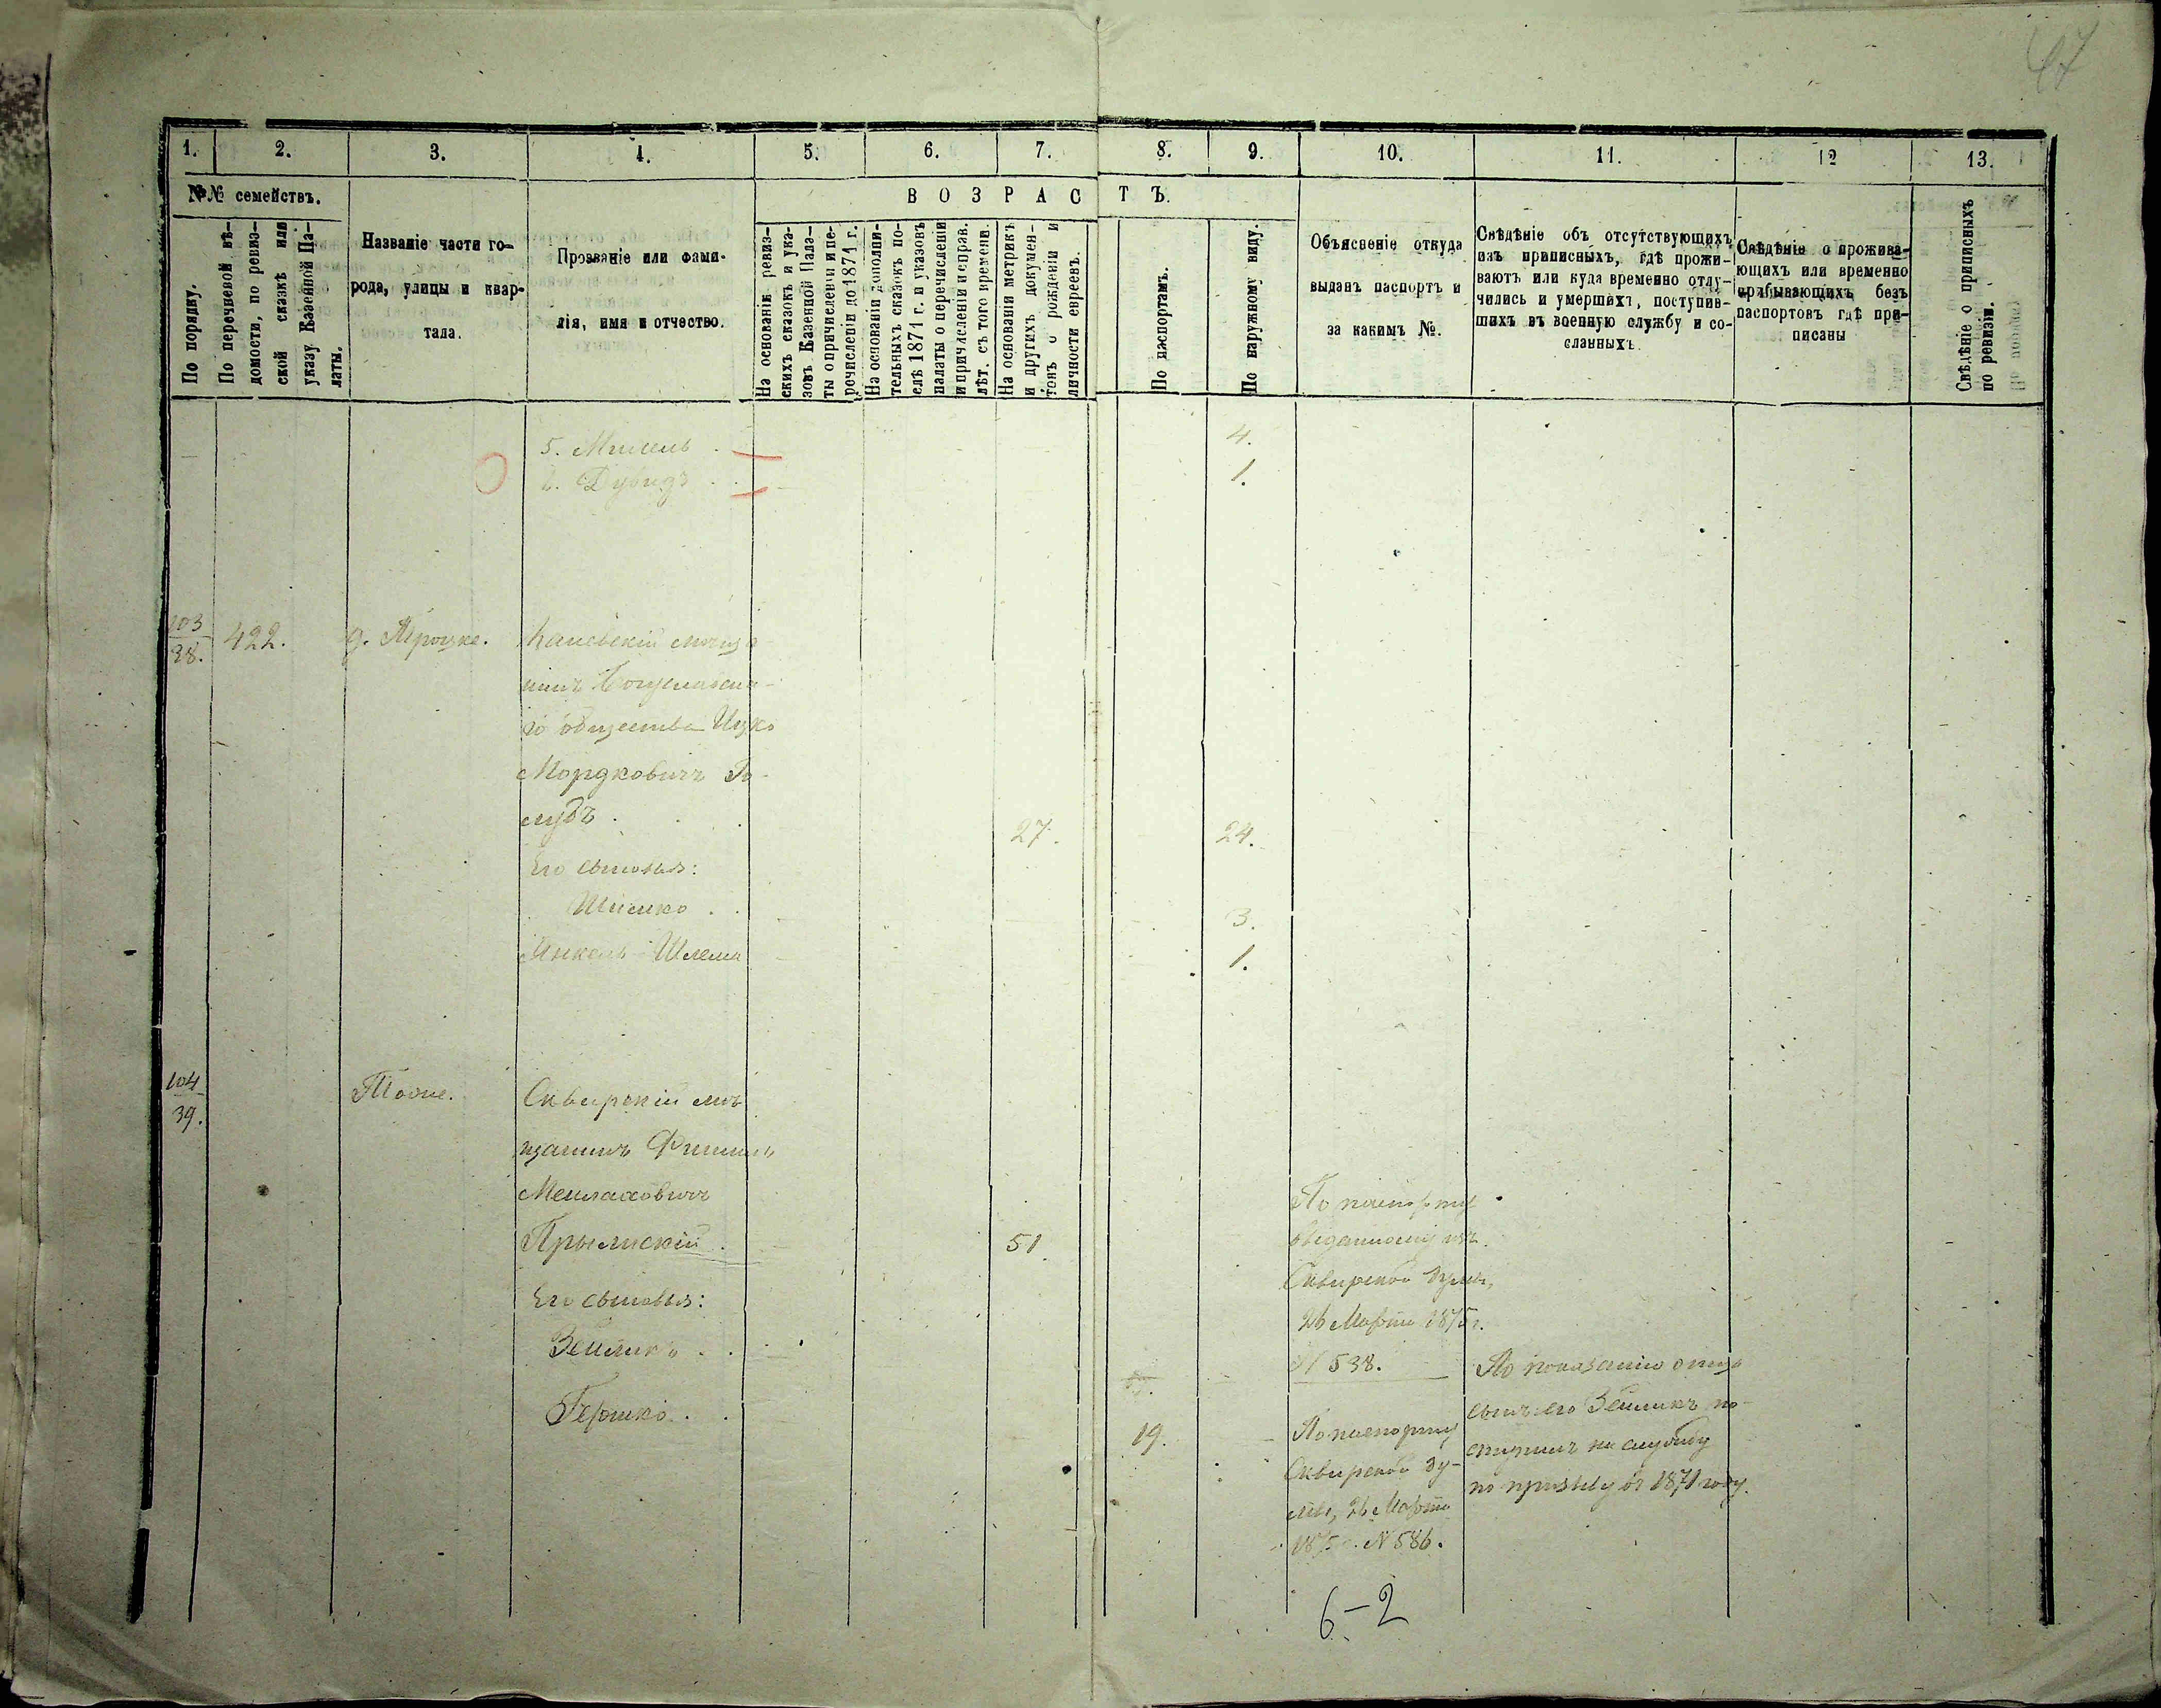 47
1. 2. 3. 4. 5. 6. 7. 8. 9. 10. 11. 12 13.
№№ семействъ.
ВОЗРАСТЪ.
По порядку.
По перечневой вѣ-
домости, по ревиз-
ской сказкѣ или
указу Казенной Па-
латы.
Названіе части го-
рода, улицы и квар-
тала.
Прозваніе или фами-
лія, имя и отчество.
На основаніи ревиз-
скихъ сказокъ и ука-
зовъ Казенной Пала-
ты о причислени и пе-
речислени до 1871 г.
На основаніи дополни-
тельныхъ сказокъ по-
слѣ 1871 г. и указовъ
палаты о перечислени
и причлени и справ.
лѣт. съ того времени.
На основани метрикъ
и другихъ докумен-
товъ о рожденіи и
личности евреевъ.
По паспортамъ.
По наружному виду.
Объясненіе откуда
выданъ паспортъ и
за какимъ №.
Свѣдѣніе объ отсутствующихъ
изъ приписныхъ, гдѣ прожи-
ваютъ или куда временно отлу-
чились и умершихъ, поступив-
шихъ въ военную службу и со-
сланныхъ
Свѣдѣніе о прожива-
ющихъ или временно
прибывающихъ безъ
паспортовъ гдѣ при-
писаны
Свѣдѣніе о приписныхъ
по ревизіи.
5. 4.
Дувидъ 1.
103
38. 422. Каневскій мѣща-
нинъ Богуславска-
го общества Ицко
Мордковичъ Го-
лубъ 27. 24.
Его сыновья:
3.
Янкель-Шлема 1.
104
39. Тоже. Сквирскій мѣ-
щанинъ
По паспорту
51 выданному изъ
Сквирской думы,
Его сыновья:
26 Марта 1875 г.
Зейликъ N 538. По показанію отца
Гершко 19. По паспорту сынъ его Зейликъ по-
Сквирской ду- ступилъ на службу
мы, 26 Марта по призыву въ 1871 году.
1875 г. N 586.
6-2